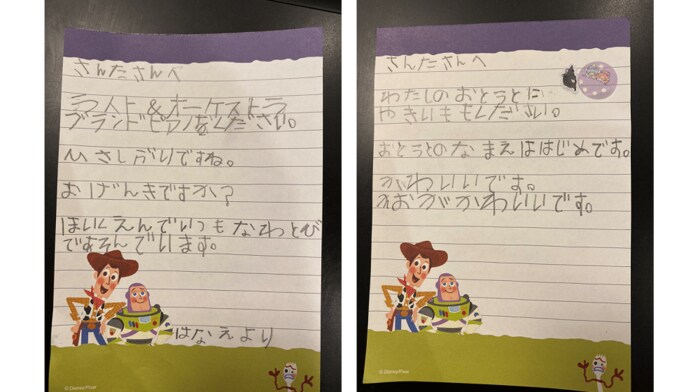 さんたさんへ
ライト&オーケストラ
グランドピアノをください。
ひさしぶりですね。
おげんきですか?
ほいくえんでいつもなわとび
であそんでいます。
はなえより
© Disney/Pixar
さんたさんへ
わたしのおとうとに
やきいももください。
おとうとのなまえははじめです。
かわいいです。
かおがかわいいです。
© Disney/Pixar